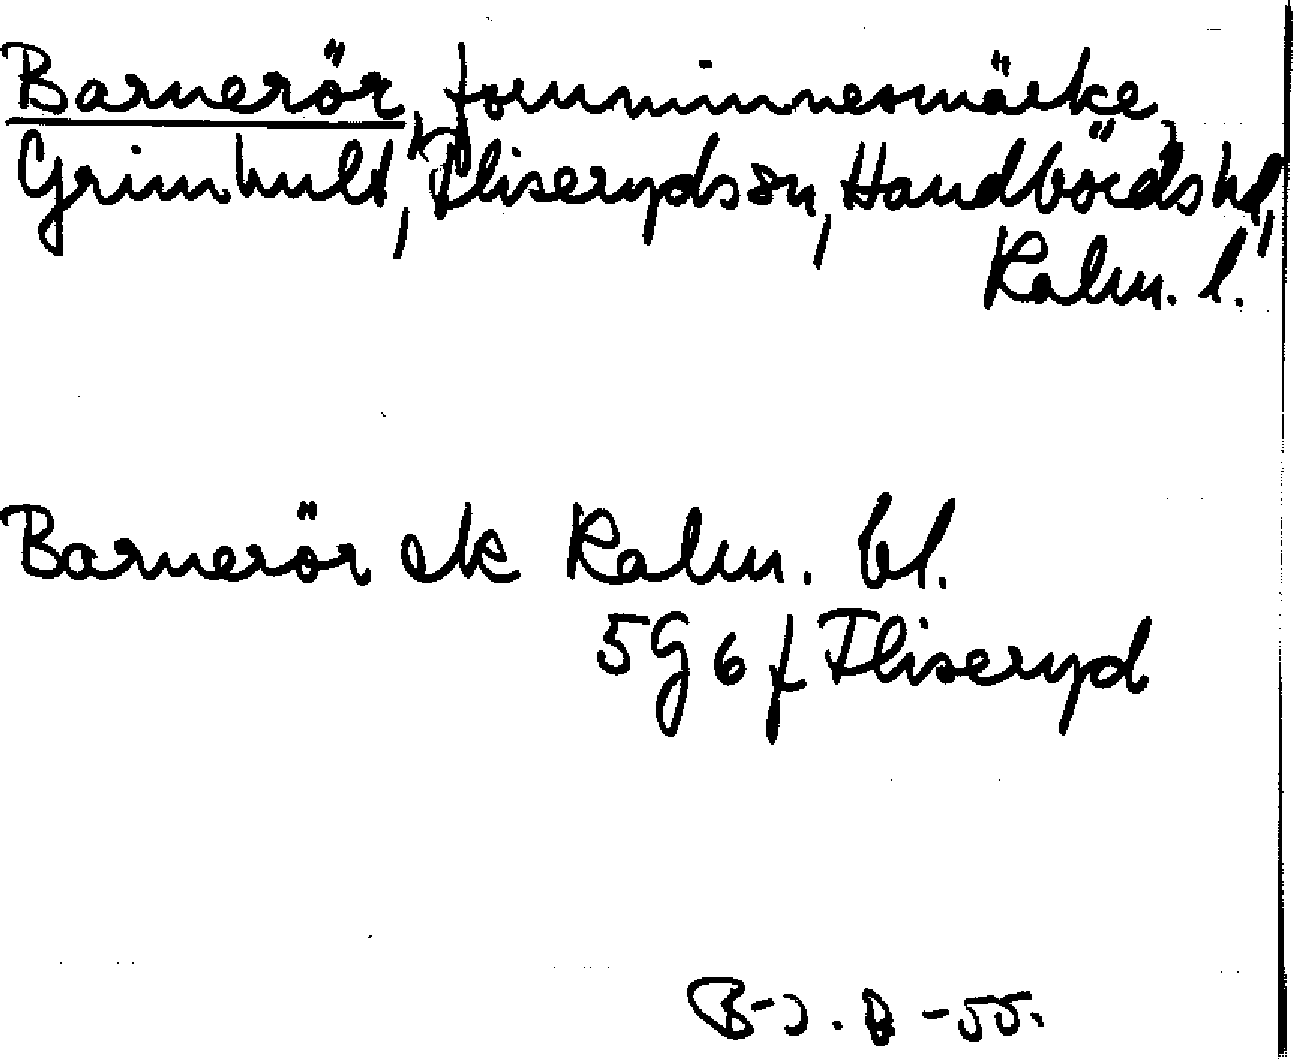 Barnerör, fornminnesmärke,
Grimhult, Fliserydssn, Handbördshd,
Kalm. l.
Barnerör ek Kalm. bl.
5G6f Fliseryd
B-J. D -55.